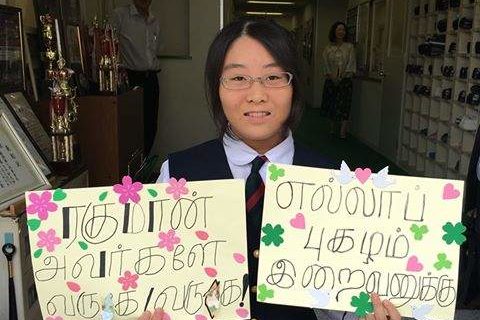 ரகுமான்
அவர்களே
வருக! வருக!
எல்லாப்
புகழும்
இறைவனுக்கு